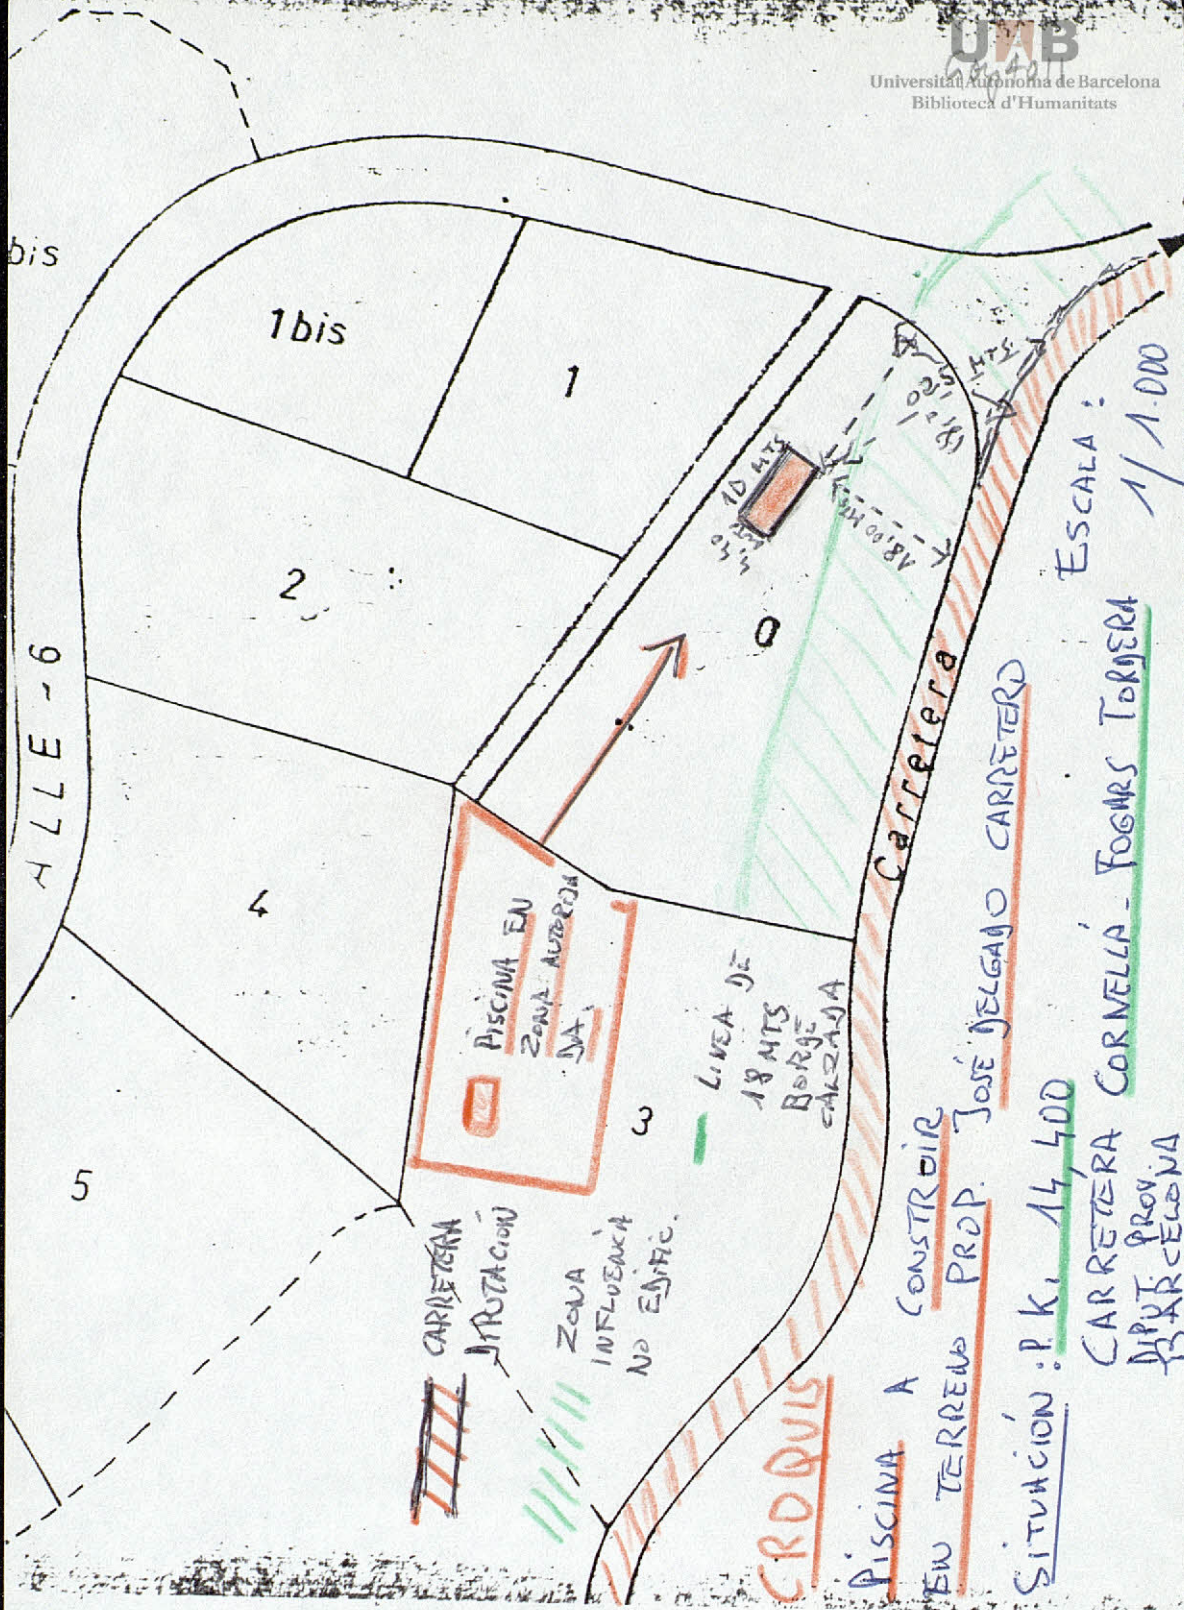 UAB
Universitat Autònoma de Barcelona
Biblioteca d'Humanitats
bis
1 bis
1
2
0
4
3
5
ALLE-6
Carretera
10 MTS
4,40
MTS
18,00 MTS
18,00
MTS
PISCINA EN
ZONA AUTORIZA
DA.
LINEA DE
18 MTS
BORDE
CALZADA
CARRETERA
DIPUTACIÓN
ZONA
INFLUENCIA
NO EDIFIC.
CROQUIS
PISCINA A CONSTRUIR
EN TERRENO PROP. JOSÉ DELGADO CARRETERO
SITUACIÓN: P.K. 14,400
CARRETERA CORNELLÁ - FOGARS TORDERA
DIPUT. PROV.
BARCELONA
ESCALA:
1/1.000